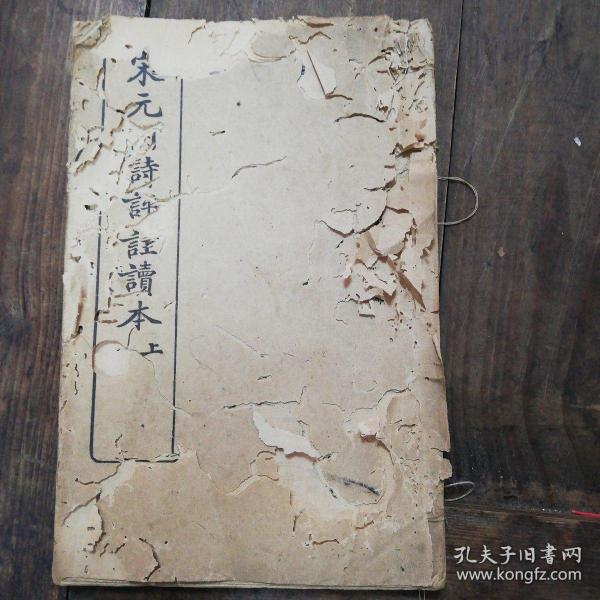 宋元明詩評註讀本
上
孔夫子旧書网
www.kongfz.com